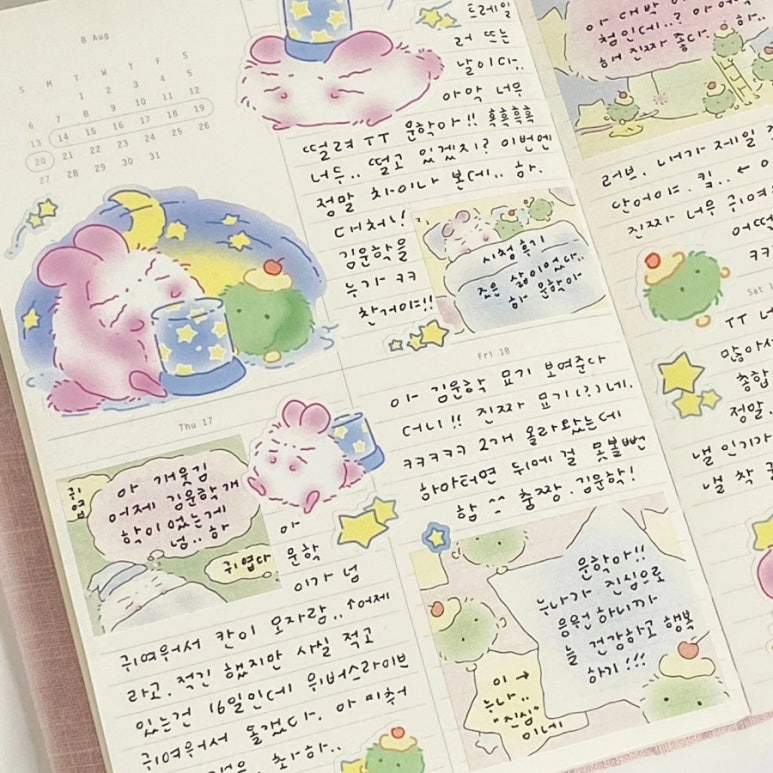 8 Aug
S M T W T F S
1 2 3 4 5
6 7 8 9 10 11 12
13 14 15 16 17 18 19
20 21 22 23 24 25 26
27 28 29 30 31
트레일
러 뜨는
날이다..
아악 너무
떨려 TT 운학아!! 흑흑흑흑
너두.. 떨고 있겠지? 이번엔
정말 차이나 본데.. 하.
대처나!
김운학을
누가 ㅋㅋ
찬거야!!
시청 후기
좋은 삶이었다..
하 운학아
Thu 17
귀엽
아 개웃김
어제 김운학 개
학이 없는게
넘.. 하
귀엽다
아
운학
이가 넘
귀여워서 칸이 모자람.. ↑어제
라고. 적긴 했지만 사실 적고
있는건 16일인데 위버스라이브
귀여워서 돌겠다. 아 미추어
하..
Fri 18
아 김운학 묘기 보여준다
더니!! 진짜 묘기(?)네.
ㅋㅋㅋㅋㅋ 2개 올라왔는데
하마터면 뒤에 걸 못볼뻔
함 ^^ 춤짱. 김운학!
운학아!!
누나가 진심으로
응원하니까
늘 건강하고 행복
하기!!!
이 →
누나..
"진심"
이네
아 대박
첨인데..?
해 진짜 좋다.. 하..
러브. 내가 제일
단어야. 킬.. ←
진짜 너무 귀여
어떡
ㅋㅋ
Sat
TT 너
많아서
종합
정말.
낼 인기가
낼 착